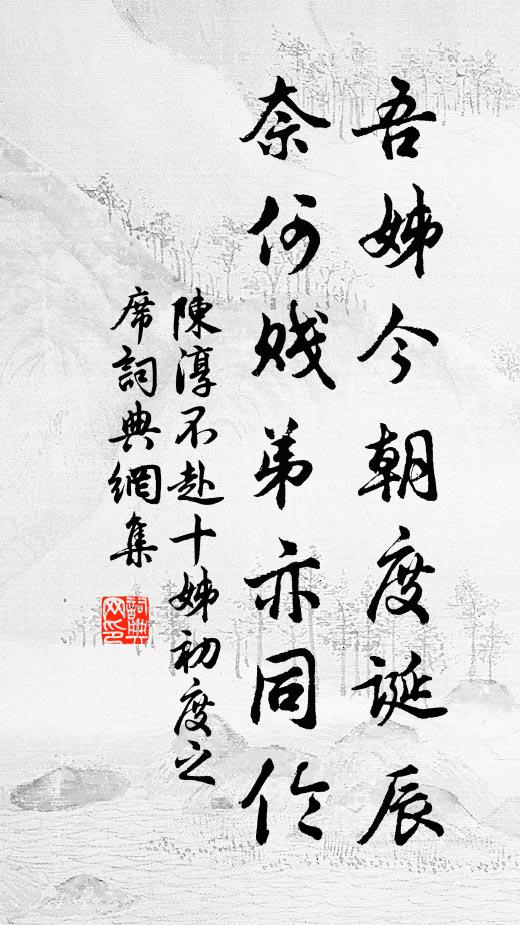 吾姊今朝度誕辰
奈何賤弟亦同倫
陳淳不赴十姊初度之
席詞典網集
詞典
网印